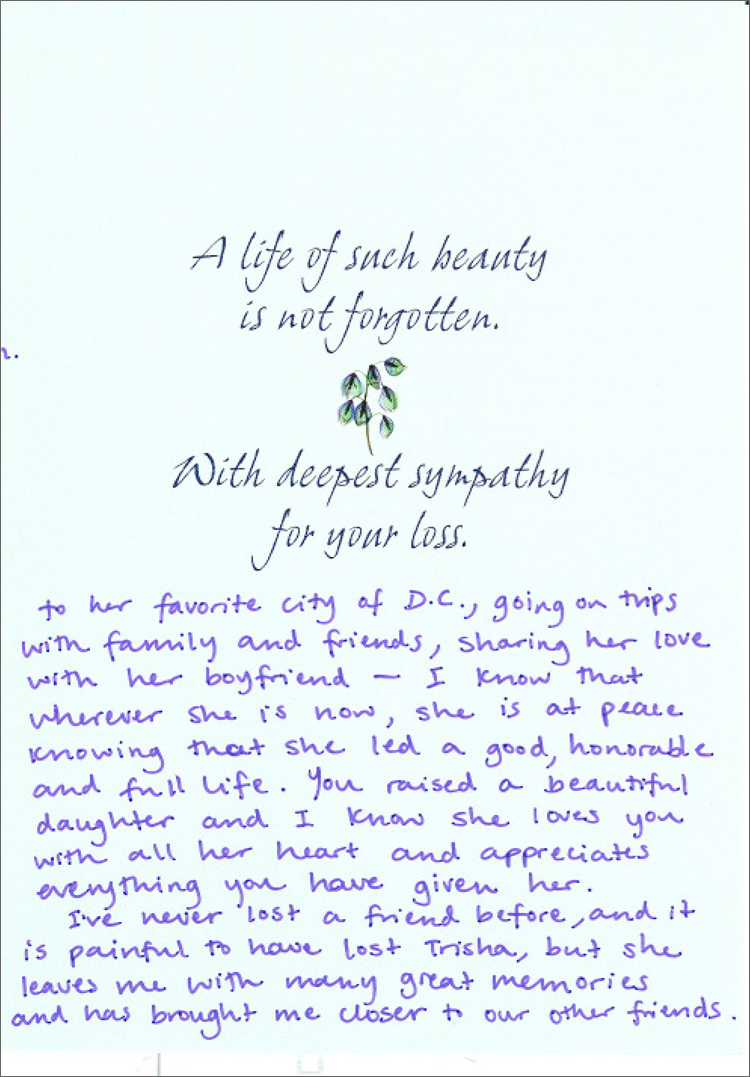 A life of such beauty
is not forgotten.
With deepest sympathy
for your loss.
to her favorite city of D.C., going on trips
with family and friends, sharing her love
with her boyfriend — I know that
wherever she is now, she is at peace
knowing that she led a good, honorable
and full life. You raised a beautiful
daughter and I know she loves you
with all her heart and appreciates
everything you have given her.
I've never lost a friend before, and it
is painful to have lost Trisha, but she
leaves me with many great memories
and has brought me closer to our other friends.